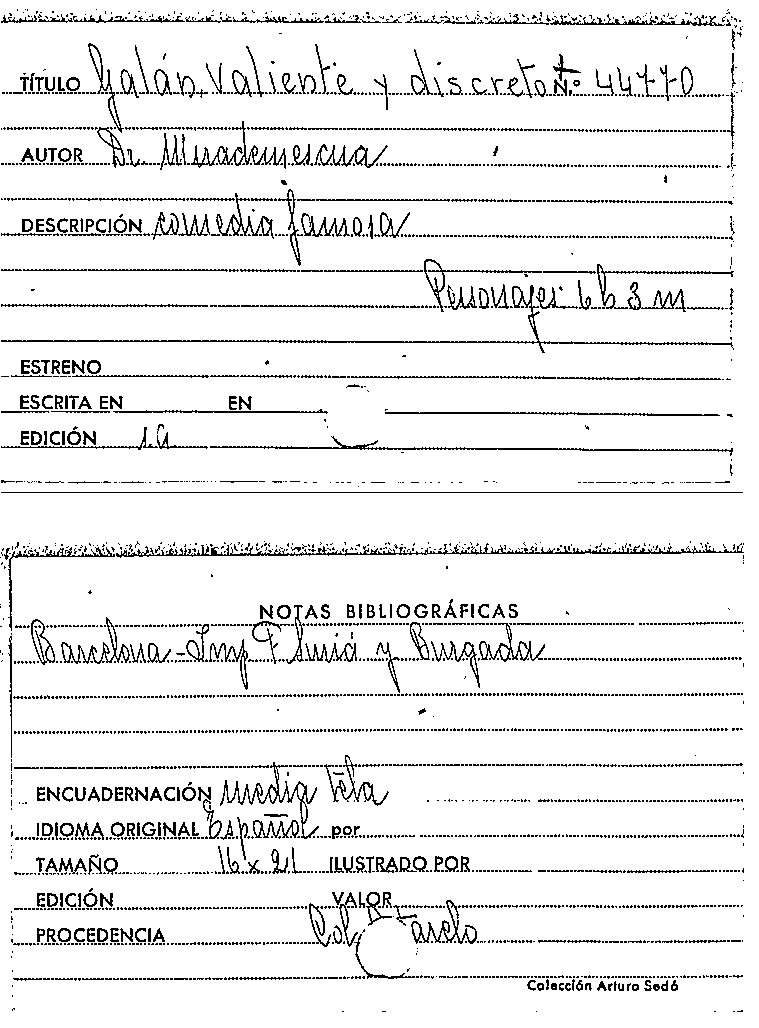 TÍTULO Galán, Valiente y discreto N.º 44770
AUTOR Dr. Mirademescua
DESCRIPCIÓN comedia famosa
Personajes 6 h 3 m
ESTRENO
ESCRITA EN EN
EDICIÓN
NOTAS BIBLIOGRÁFICAS
Barcelona - Imp F Suriá y Burgada
ENCUADERNACIÓN media tela
IDIOMA ORIGINAL Español por
TAMAÑO 16 x 21 ILUSTRADO POR
EDICIÓN VALOR
PROCEDENCIA Col
Colección Arturo Sedó